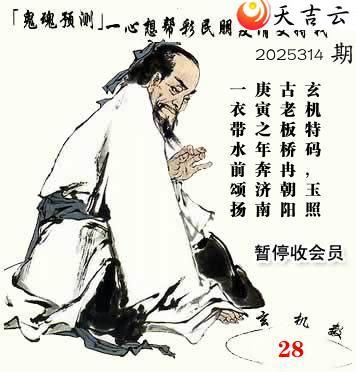 天吉云
「鬼魂预测」一心想帮彩民朋
2025314 期
玄机特码，玉照
古老板桥冉朝阳
庚寅之年奔济南
一衣带水前颂扬
暂停收会员
玄机数
28